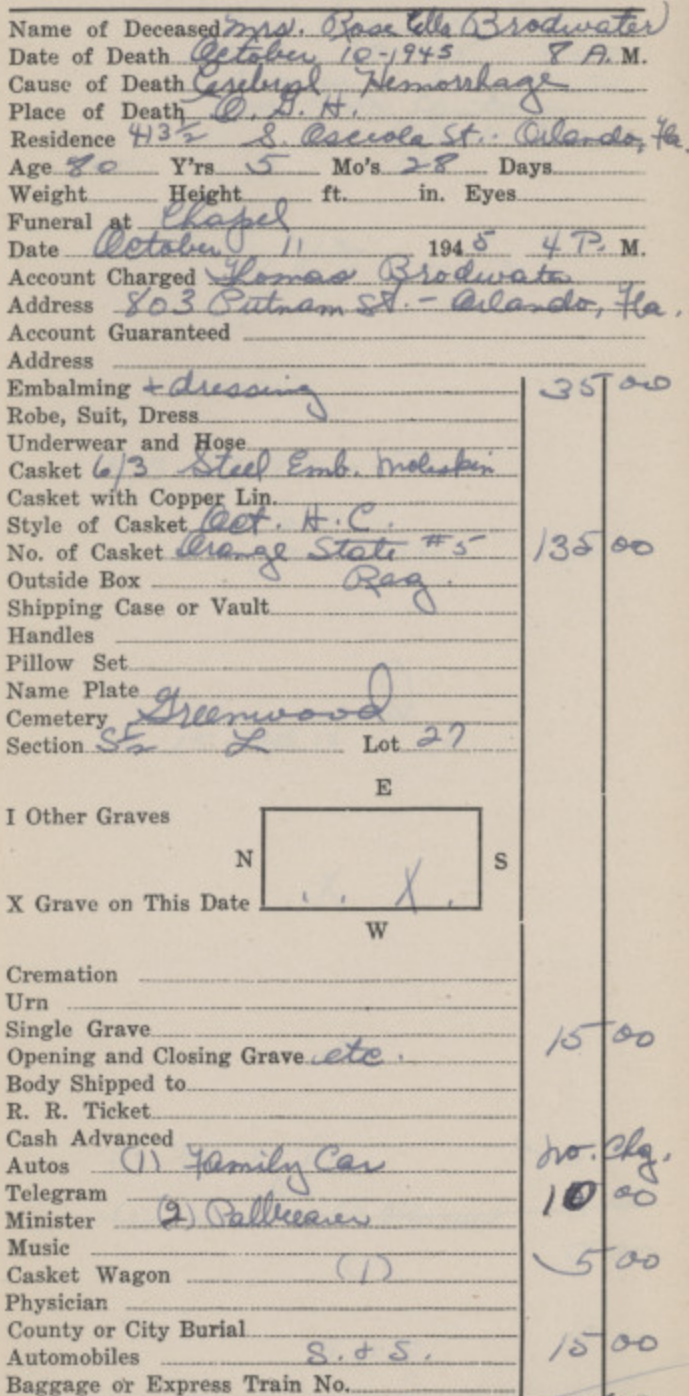 Name of Deceased Mrs. Rose Ella Brodwater
Date of Death October 10-1945 8 A. M.
Cause of Death Cerebral Hemorrhage
Place of Death O. G. H.
Residence 413½ S. Osceola St. Orlando, Fla.
Age 80 Y'rs 5 Mo's 28 Days
Weight Height ft. in. Eyes
Funeral at Chapel
Date October 11 1945 4 P. M.
Account Charged Thomas Brodwater
Address 803 Putnam St. - Orlando, Fla.
Account Guaranteed
Address
Embalming + dressing 35 00
Robe, Suit, Dress
Underwear and Hose
Casket 6/3 Steel Emb. Moleskin
Casket with Copper Lin.
Style of Casket Oct. H. C.
No. of Casket Orange State #5 135 00
Outside Box Reg.
Shipping Case or Vault
Handles
Pillow Set
Name Plate
Cemetery Greenwood
Section S½ L Lot 27
E
I Other Graves
N S
X Grave on This Date X
W
Cremation
Urn
Single Grave
Opening and Closing Grave etc. 15 00
Body Shipped to
R. R. Ticket
Cash Advanced
Autos (1) Family Car no. Chg.
Telegram
Minister (2) Pallbearer 10 00
Music
Casket Wagon (1) 5 00
Physician
County or City Burial
Automobiles S. & S. 15 00
Baggage or Express Train No.